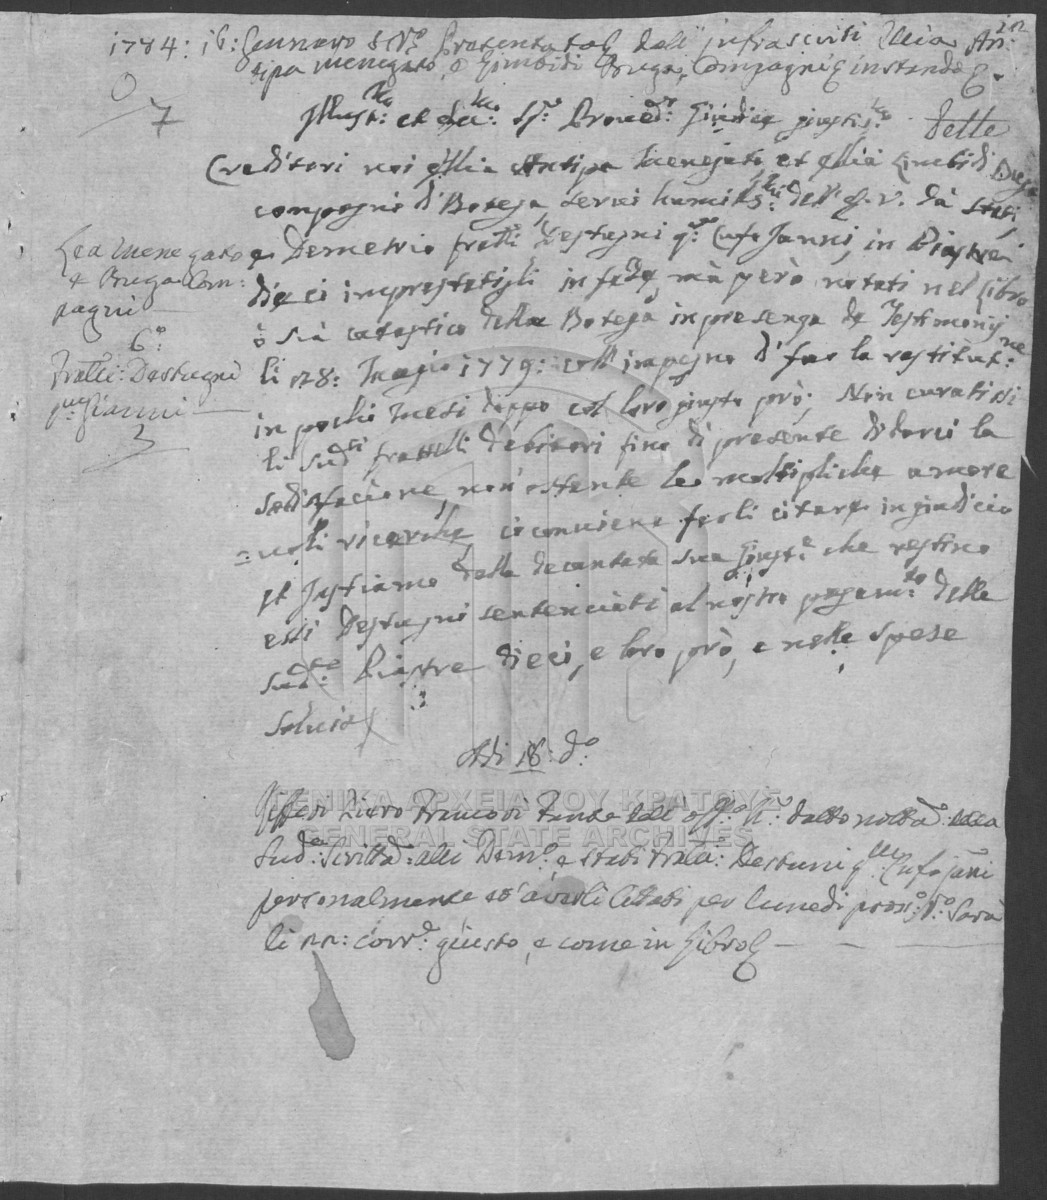 1784: 16: Gennaro S.V.º Presentata dall' infrascritti Ilia An:
tipa Menegato, e Gimbidi Bruga, Compagni instando
7
Illust: et Ecc: Sig.r Proved.r Giudice giustis.mo Delle
Creditori noi Ilia Antipa Menegato et Ilia Gimbidi Bruga
compagni d' Botega servi humilis.mi dell' E. V. da Stati,
e Demetrio fratli Destugni q.m Cufojanni, in Piastre
dieci imprestatigli in fede, mà però notati nel Libro
ò sià catastico della Botega in presenza de Testimonij
li 28: Magio 1779: coll' impegno d' far la restituz.ne
in pochi mesi doppo col loro giusto prò; Non curatisi
li Sud.ti fratelli debitori fino di presente di darci la
sodisfacione, non ostante le moltipliche amore
=voli ricerche, ci conviene farli citare in giudicio
et Instiamo dalla decantata sua Giust.a che restino
essi Destugni sentenciati al nostro pagam.to delle
sud.te Piastre dieci, e loro prò, e nelle spese
Salvis
Lea Menegato
e Bruga Com:
pagni
Cº
Fratli: Destugni
q.m Gianni
3
Adi 18: dº
Riferì Piero Fante dall' off.º haver datto notta: della
Sud.ta Scritta: alli Dem.º, e Stati frali: Destuni q.m Cufojani
personalmente et averli Cittati per lunedi pros.º Sarà
li 22: corr.e giusto, e come in Libro
ΓΕΝΙΚΑ ΑΡΧΕΙΑ ΤΟΥ ΚΡΑΤΟΥΣ
GENERAL STATE ARCHIVES